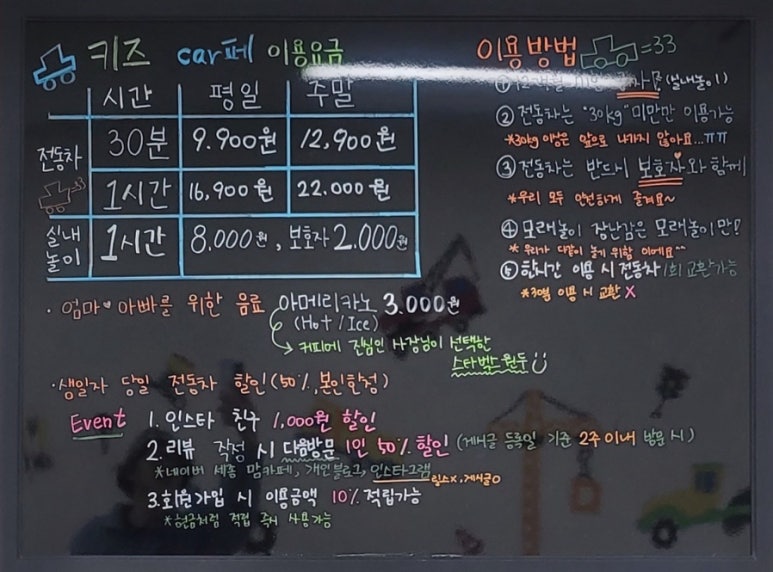 키즈 car페 이용요금
시간 평일 주말
전동차 30분 9.900원 12,900원
1시간 16,900원 22.000원
실내놀이 1시간 8,000원, 보호자 2.000원
· 엄마♥아빠를 위한 음료 아메리카노 3.000원
(Hot / Ice)
커피에 진심인 사장님이 선택한
스타벅스 원두
· 생일자 당일 전동차 할인(50%, 본인한정)
Event 1. 인스타 친구 1,000원 할인
2. 리뷰 작성 시 다음방문 1인 50% 할인 (게시글 등록일 기준 2주 이내 방문 시)
*네이버 세종 맘카페, 개인블로그, 인스타그램 릴스x, 게시글o
3. 회원가입 시 이용금액 10% 적립가능
*현금처럼 적립 즉시 사용가능
이용방법 =33
① (실내놀이)
② 전동차는 "30kg" 미만만 이용가능
*30kg 이상은 앞으로 나가지 않아요...ㅠㅠ
③ 전동차는 반드시 보호자와 함께
*우리 모두 안전하게 즐겨요~
④ 모래놀이 장난감은 모래놀이만!
* 우리가 다같이 놀기 위함 이에요^^
⑤ 한시간 이용 시 전동차 1회 교환가능
*30분 이용 시 교환 X